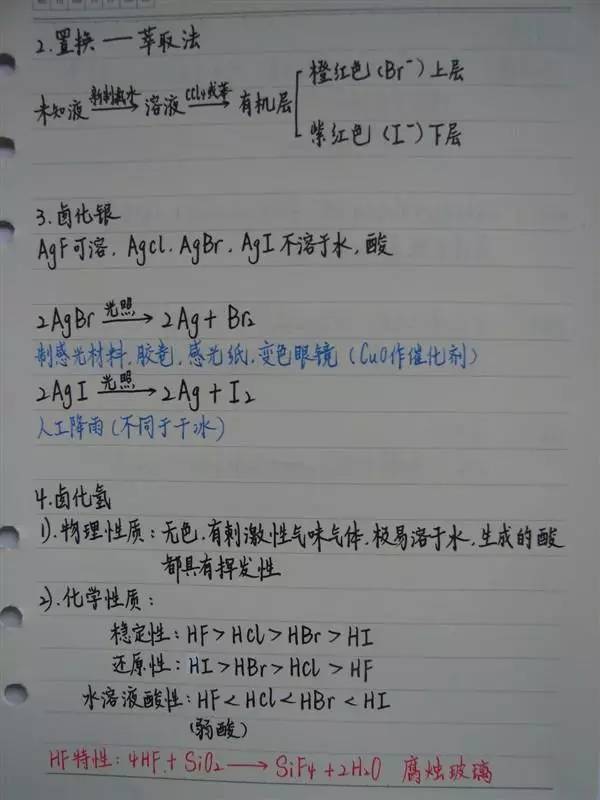 2.置换——萃取法
橙红色(Br⁻)上层
未知液 新制氯水→ 溶液 CCl4或苯→ 有机层
紫红色(I⁻)下层
3.卤化银
AgF可溶,AgCl.AgBr,AgI不溶于水,酸
2AgBr 光照→ 2Ag+Br₂
制感光材料,胶卷,感光纸,变色眼镜(CuO作催化剂)
2AgI 光照→ 2Ag+I₂
人工降雨(不同于干冰)
4.卤化氢
1).物理性质:无色,有刺激性气味气体,极易溶于水,生成的酸
都具有挥发性
2).化学性质:
稳定性:HF>HCl>HBr>HI
还原性:HI>HBr>HCl>HF
水溶液酸性:HF<HCl<HBr<HI
(弱酸)
HF特性:4HF+SiO₂→SiF₄+2H₂O 腐蚀玻璃